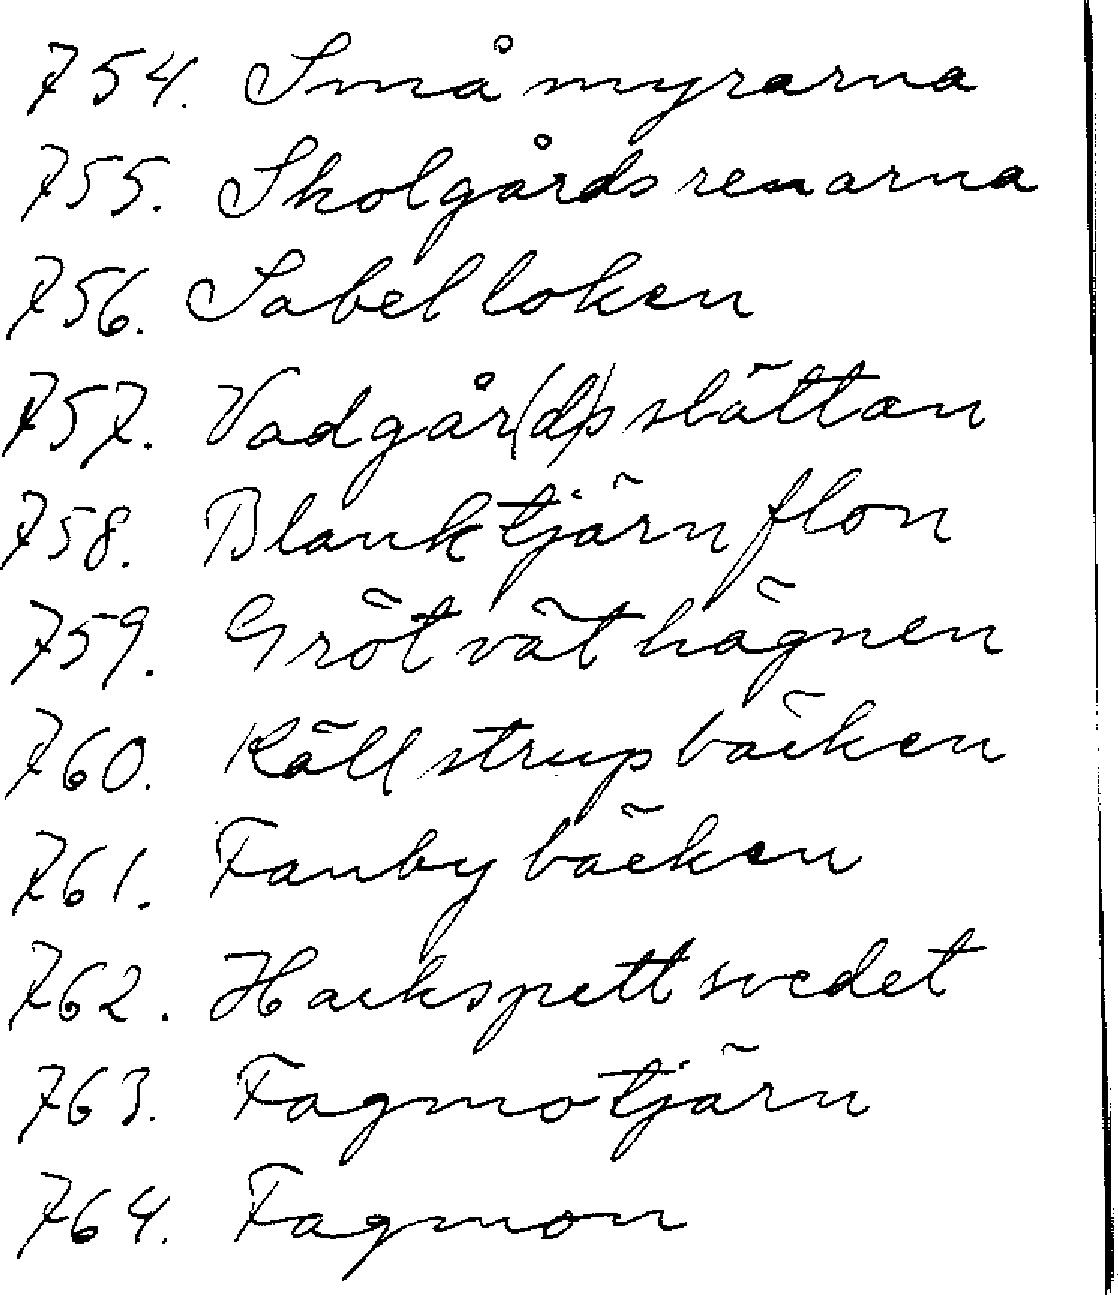 754. Småmyrarna
755. Skolgårdsrenarna
756. Sabelloken
757. Vadgår(d)sslåttan
758. Blanktjärnflon
759. Grötväthägnen
760. Källstrupbäcken
761. Fanbybäcken
762. Hackspettsvedet
763. Fagmotjärn
764. Fagmon